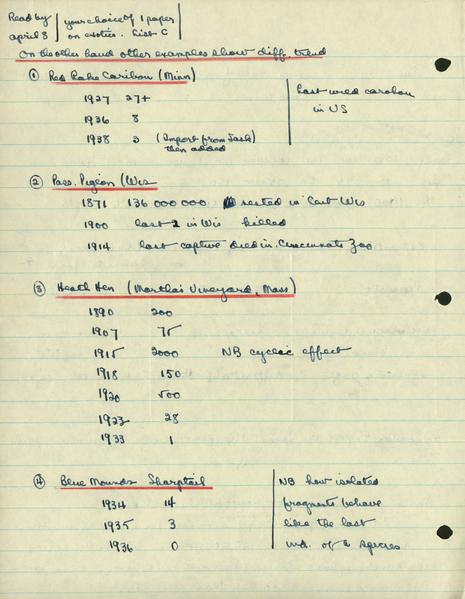 Read by | your choice of 1 paper
april 8 | on exotics. List C
On the other hand other examples show diff. trend
① Red Lake Caribou (Minn)
1927 27+
1936 8
1938 3 (Import from Sask) then added
Last wild caribou
in US
② Pass. Pigeon (Wis
1871 136 000 000 nested in Cent Wis
1900 last 2 in Wis killed
1914 last captive died in Cincinnati Zoo
③ Heath Hen (Martha's Vineyard, Mass)
1890 200
1907 75
1915 2000 NB cyclic effect
1918 150
1920 500
1923 28
1933 1
④ Blue Mounds Sharptail
1934 14
1935 3
1936 0
NB how isolated
fragments behave
like the last
ind. of species